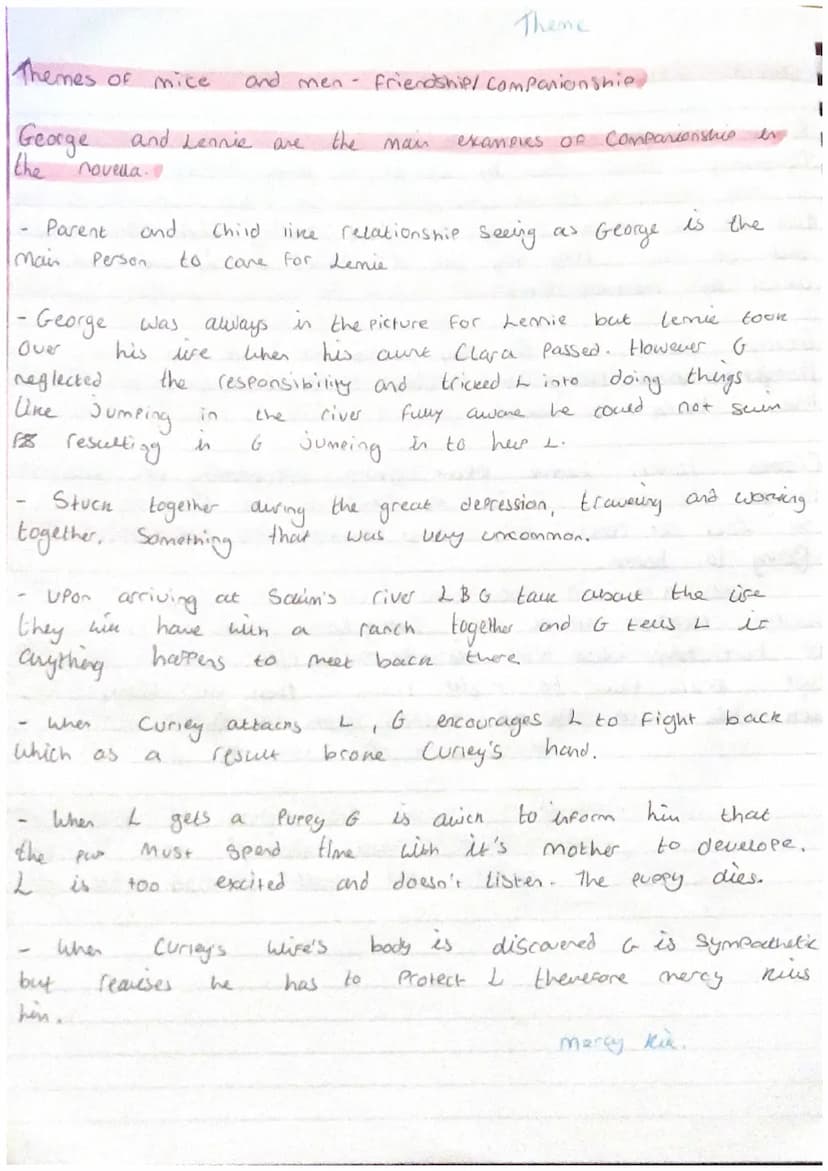 Theme
Themes of mice and men - Friendship/Companionship
George and Lennie are the main examples of Companionship in
the novella.
- Parent and Child like relationship seeing as George is the
main person to care for Lennie
- George was always in the picture for Lennie but Lennie took
over his life when his aunt Clara passed. However G
neglected the responsibility and tricked L into doing things
like jumping in the river fully aware he could not swim
resulting in G jumping in to help L.
- Stuck together during the great depression, travelling and working
together. Something that was very uncommon.
- Upon arriving at river L & G talk about the life
they will have with a ranch together and G tells L if
anything happens to meet back there
- When Curley attacks L, G encourages L to Fight back
which as a result broke Curley's hand.
- When L gets a puppy G is quick to inform him that
the pup must spend time with it's mother to develope.
L is too excited and doesn't listen. The puppy dies.
- When Curley's wife's body is discovered G is sympathetic
but realises he has to protect L therefore mercy kills
him.
mercy kill.